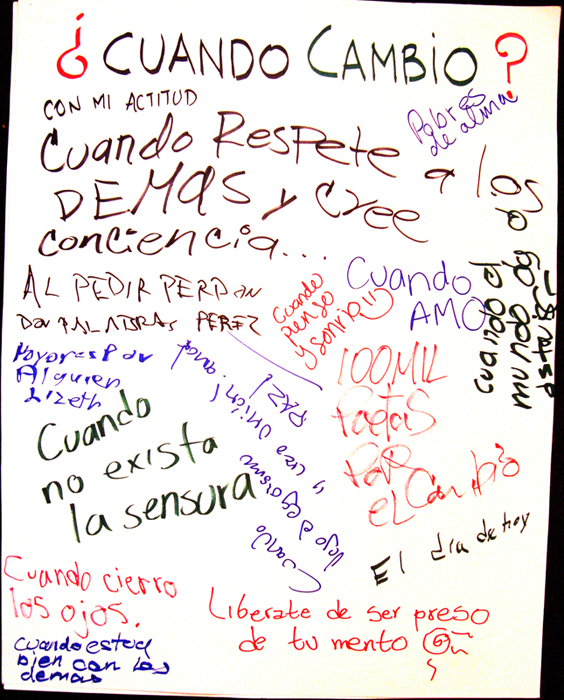 ¿CUANDO CAMBIO?
CON MI ACTITUD
Pobres
de alma
Cuando Respete a los
DEMAS y cree
conciencia...
AL PEDIR PERDON
PALABRAS PEREZ
Cuando
pienso
y sonrio
Cuando
AMO
cuando el
mundo
Alguien
Lizeth
100MIL
Poetas
POR
EL Cambio
Cuando
no exista
la sensura
Cuando
dejo el egoismo
y creo union!
PAZ!
amor
El dia de hoy
Cuando cierro
los ojos.
Cuando estoy
bien con los
demas
Liberate de ser preso
de tu mente